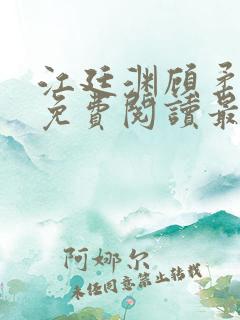 江廷渊顾柔
免費閱讀最
阿娜尔
未经同意禁止转载